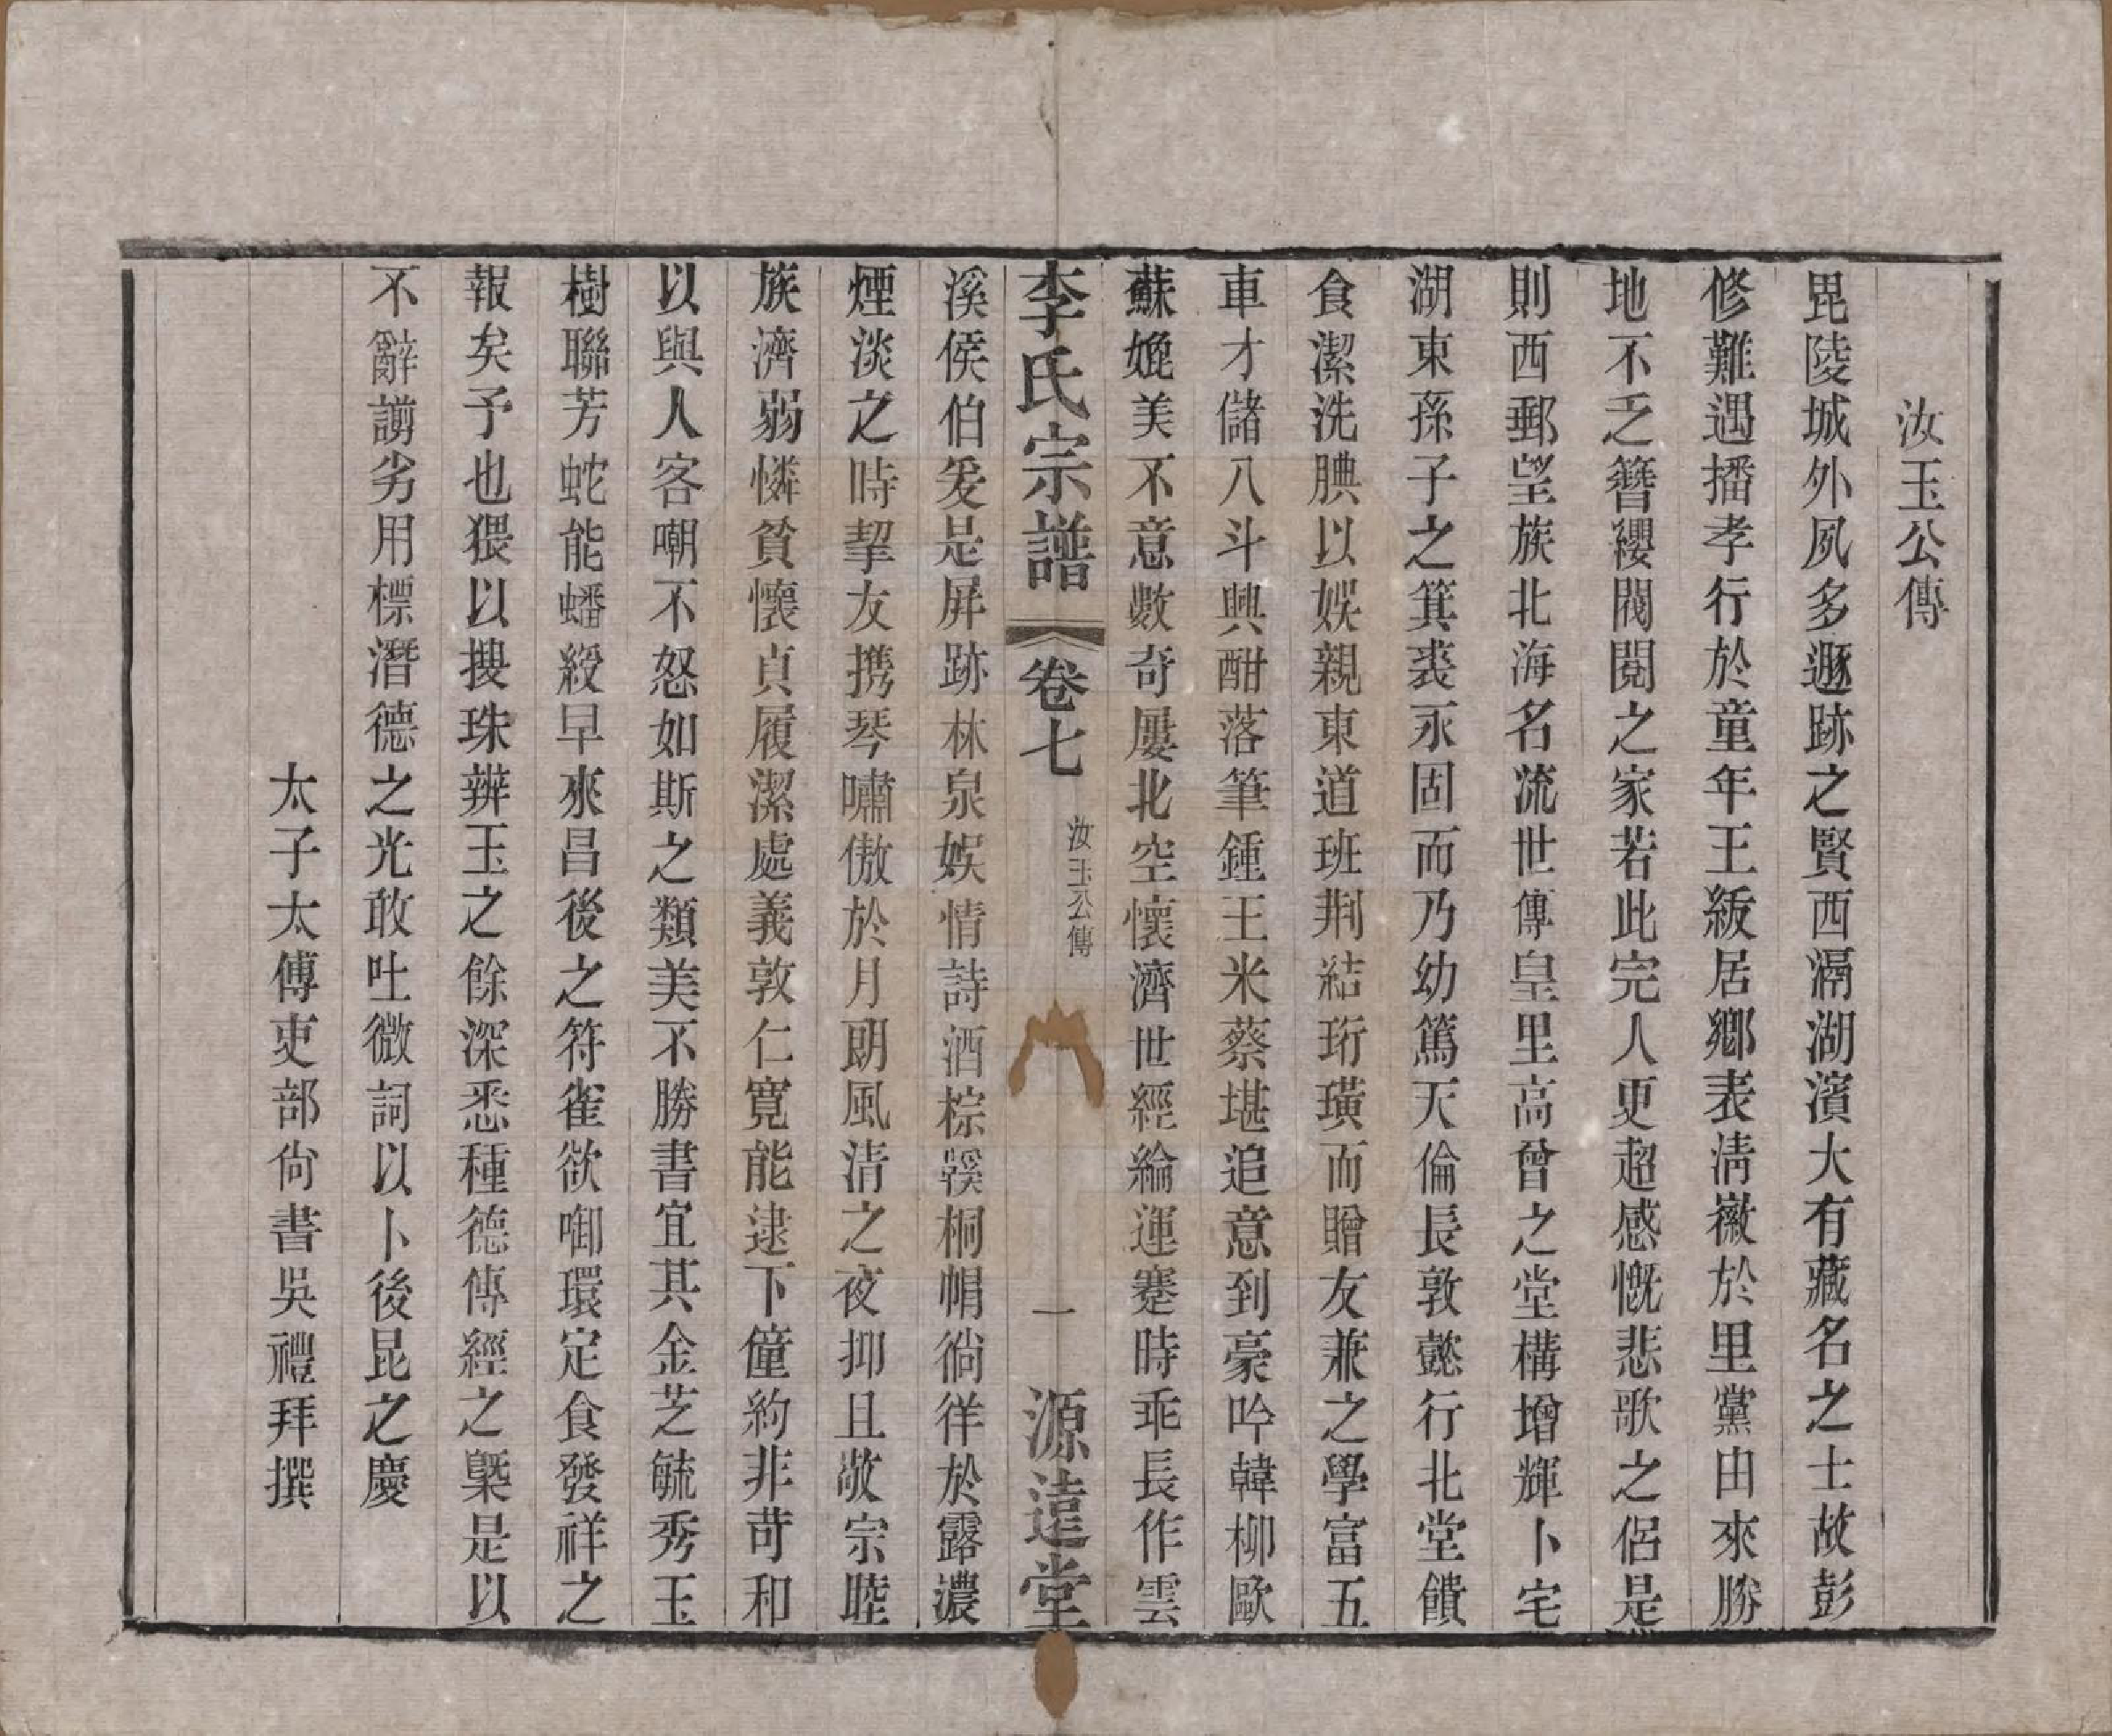 汝玉公傳
毘陵城外夙多遯跡之賢西滆湖濱大有藏名之士故彭
修難遇播孝行於童年王綝居鄉表淸徽於里黨由來勝
地不乏簪纓閥閱之家若此完人更超感慨悲歌之侶是
則西郵望族北海名流世傳皇里高曾之堂構增輝卜宅
湖東孫子之箕裘永固而乃幼篤天倫長敦懿行北堂饋
食潔洗腆以娛親東道班荆結珩璜而贈友兼之學富五
車才儲八斗興酣落筆鍾王米蔡堪追意到豪吟韓柳歐
蘇媲美不意數奇屢北空懷濟世經綸運蹇時乖長作雲
李氏宗譜 卷七 汝玉公傳 一 源遠堂
溪侯伯爰是屏跡林泉娛情詩酒棕鞵桐帽徜徉於露濃
煙淡之時挈友携琴嘯傲於月朗風清之夜抑且敬宗睦
族濟弱憐貧懷貞履潔處義敦仁寬能逮下僮約非苛和
以與人客嘲不怒如斯之類美不勝書宜其金芝毓秀玉
樹聯芳蛇能蟠綬早來昌後之符雀欲啣環定食發祥之
報矣予也猥以搜珠辨玉之餘深悉種德傳經之槩是以
不辭謭劣用標潛德之光敢吐微詞以卜後昆之慶
太子太傅吏部尙書吳禮拜撰